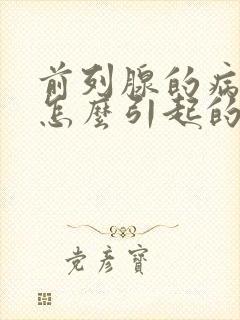 前列腺的病
怎麼引起的
党彦寶